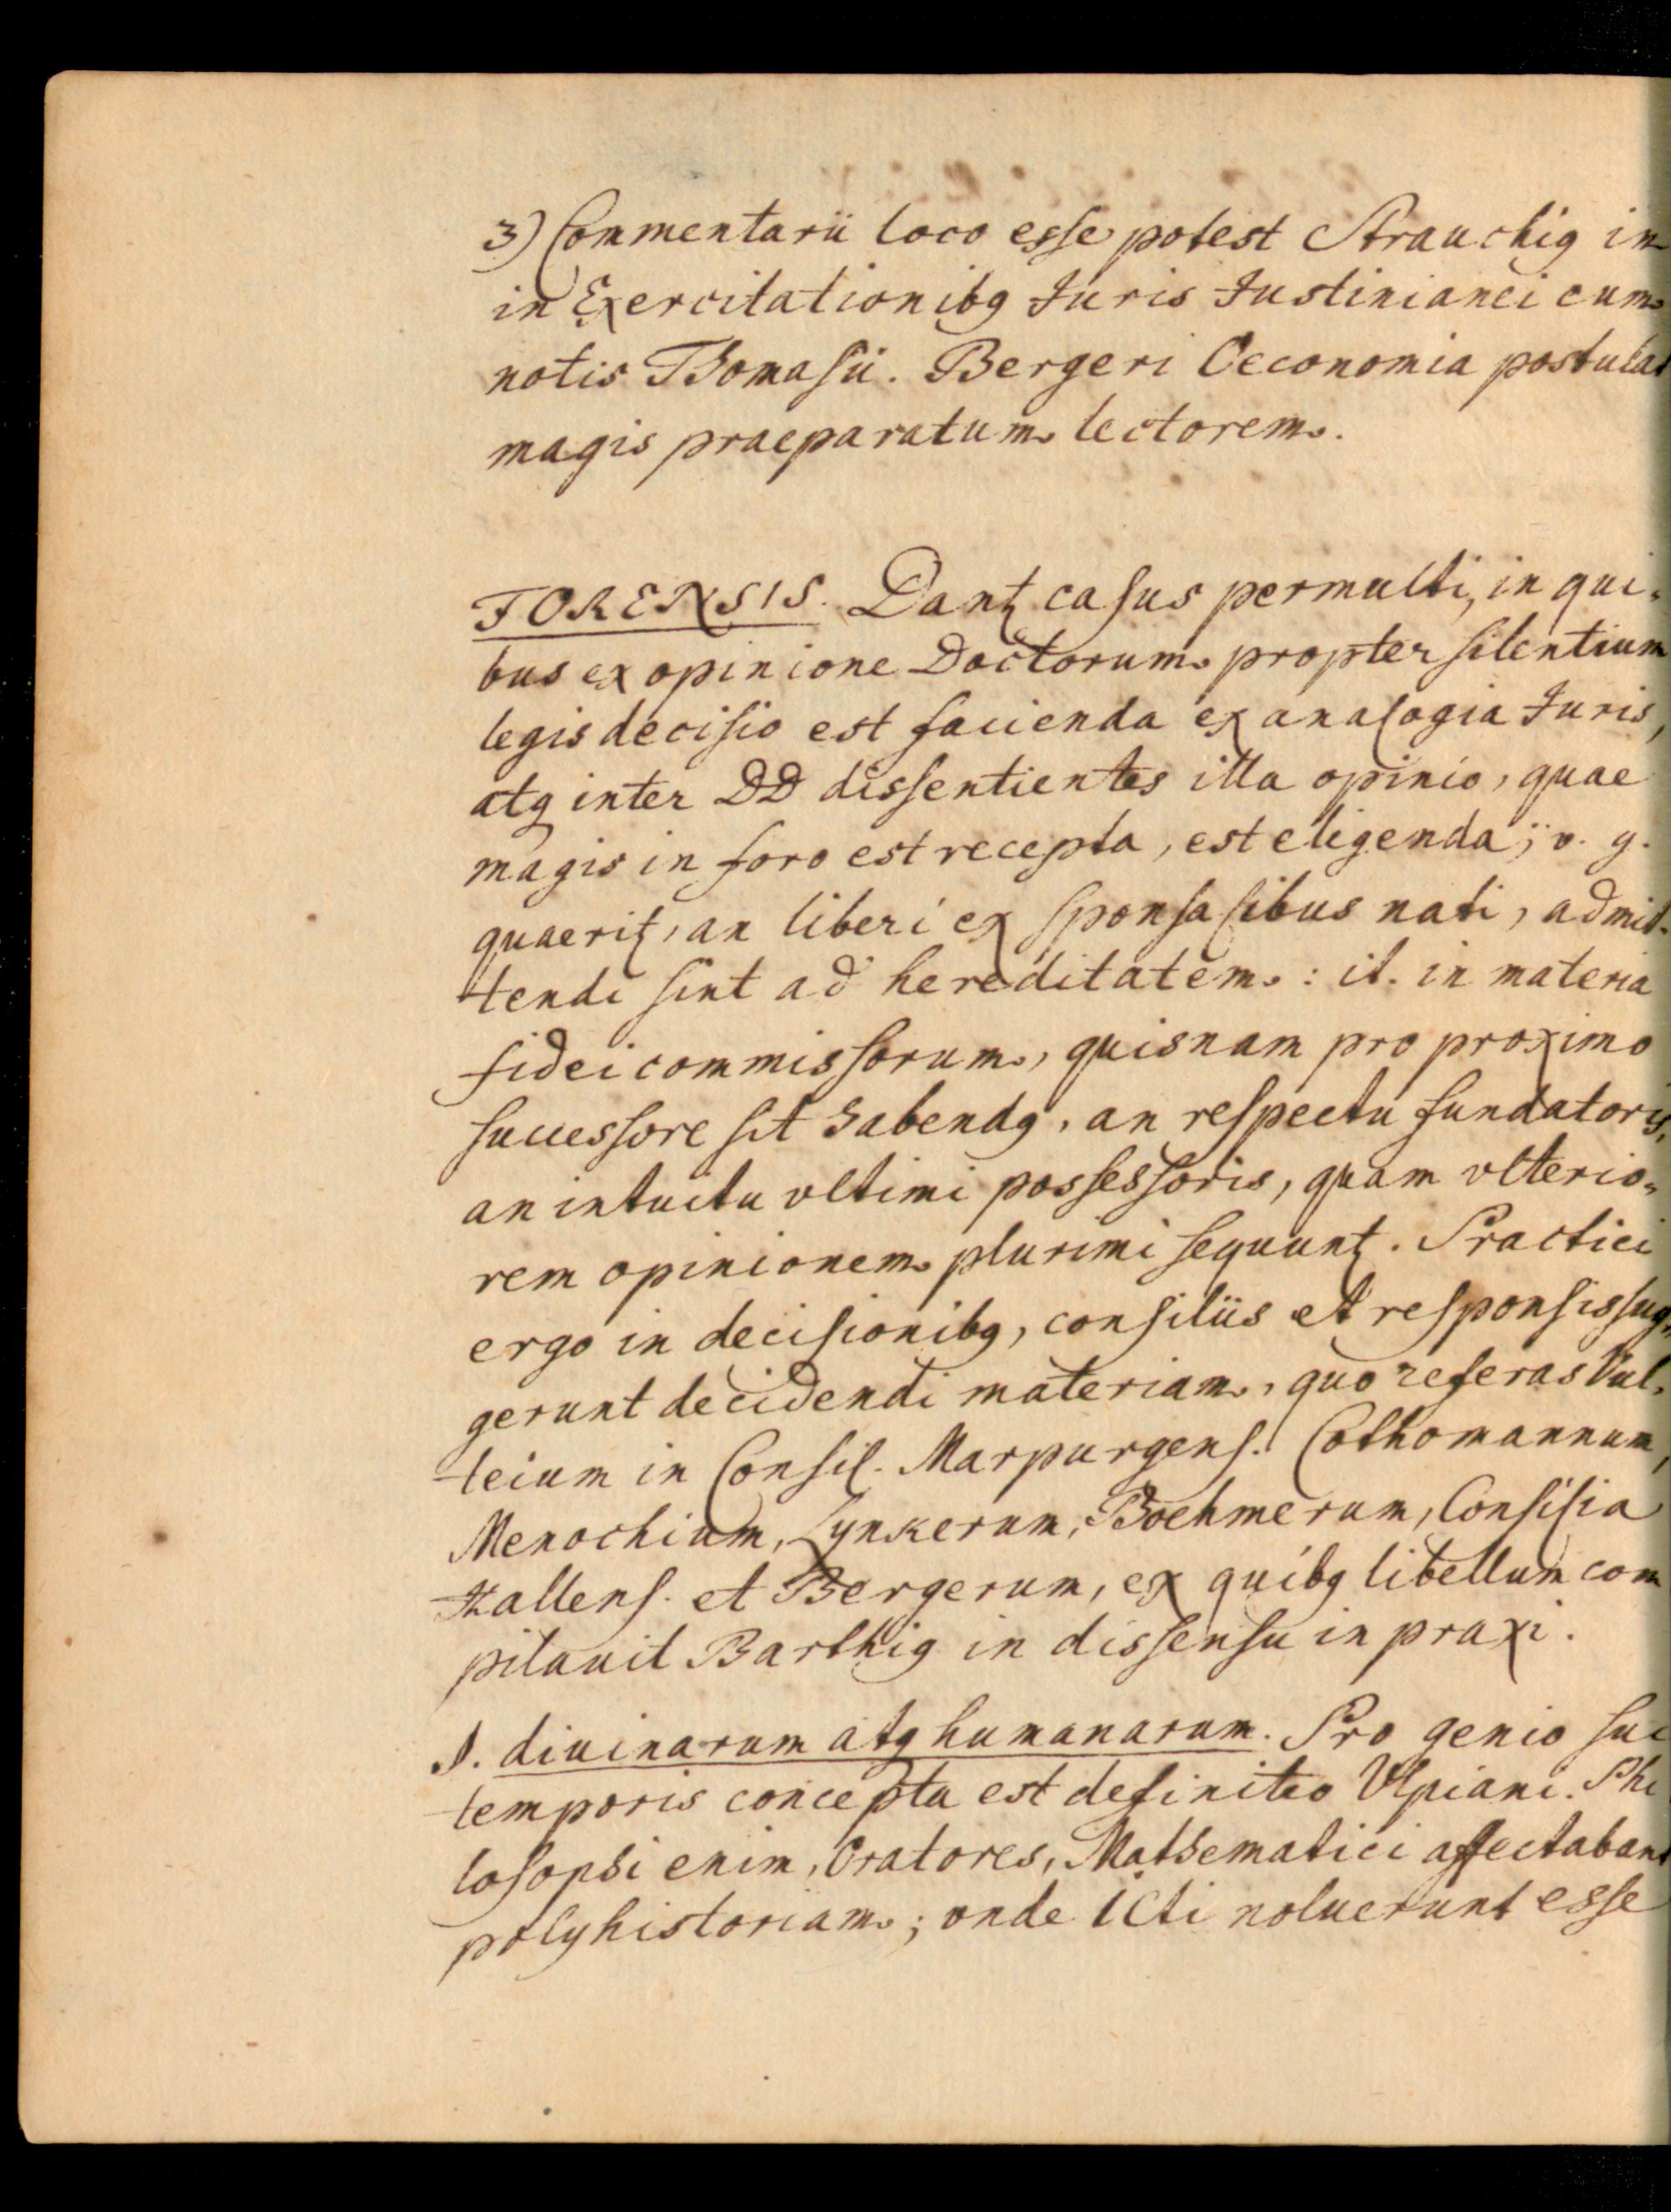 3) Commentarii loco esse potest Strauchiꝰ in
in Exercitationibꝰ Juris Justinianei cum
notis Thomasii. Bergeri Oeconomia postulat
magis praeparatum lectorem.
FORENSIS. Dantꝛ casus permulti, in qui-
bus ex opinione Doctorum propter silentium
legis decisio est facienda ex analogia Juris,
atqꝫ inter DD dissentientes illa opinio, quae
magis in foro est recepta, est eligenda; v. g.
quaeritꝛ, an liberi ex sponsalibus nati, admit-
tendi sint ad hereditatem: it. in materia
fideicommissorum, quisnam pro proximo
successore sit habendꝰ, an respectu fundatoris,
an intuitu vltimi possessoris, quam vlterio-
rem opinionem plurimi sequuntꝛ. Practici
ergo in decisionibꝰ, consiliis et responsis sug-
gerunt decidendi materiam, quo referas Vul-
teium in Consil. Marpurgens. Cothomannum,
Menochium, Lynkerum, Boehmerum, Consilia
Hallens. et Bergerum, ex quibꝰ libellum com
pilauit Barthiꝰ in dissensu in praxi.
§. diuinarum atqꝫ humanarum. Pro genio sui
temporis concepta est definitio Vlpiani. Phi
losophi enim, Oratores, Mathematici affectabant
polyhistoriam; vnde ICti noluerunt esse